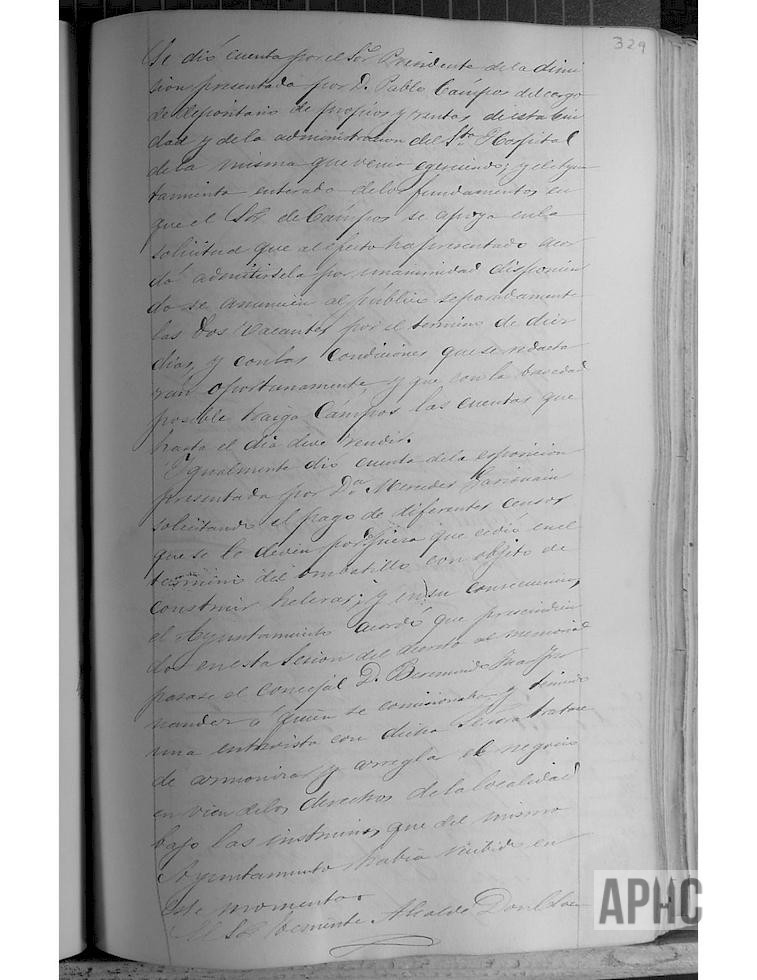 329
Se dió cuenta por el Sor. Presidente de la dimi
sion presentada por D. Pablo Cámpos del cargo
de depositario de propios y rentas de esta Ciu
dad y de la administracion del Sto. Hospital
de la misma que venia egerciendo; y el Ayun
tamiento enterado de los fundamentos en
que el Sor. de Cámpos se apoya en la
solicitud que al efecto ha presentado acor
dó admitirsela por unanimidad disponien
do se anuncien al público separadamente
las dos vacantes por el termino de diez
dias, y con las condiciones que se redacta
rán oportunamente, y que con la brevedad
posible traiga Cámpos las cuentas que
hasta el dia deve rendir.
Ygualmente dió cuenta de la esposicion
presentada por Da. Mercedes
solicitando el pago de diferentes censos
que se le deven por que cedió en el
termino del ombatillo con objeto de
construir heleras; y en su consecuencia,
el Ayuntamiento acordó que prescindien
do en esta Sesion del decreto al memorial
pasase el concejal D. Bermundo
nandez á quien se comisionaba y teniendo
una entrevista con dicha Señora tratase
de armonizar y arreglar el negocio
en vien de los derechos de la localidad
bajo las instruccines que del mismo
Ayuntamiento habia recibido en
este momento.
El Sor. Teniente Alcalde Don
APHC